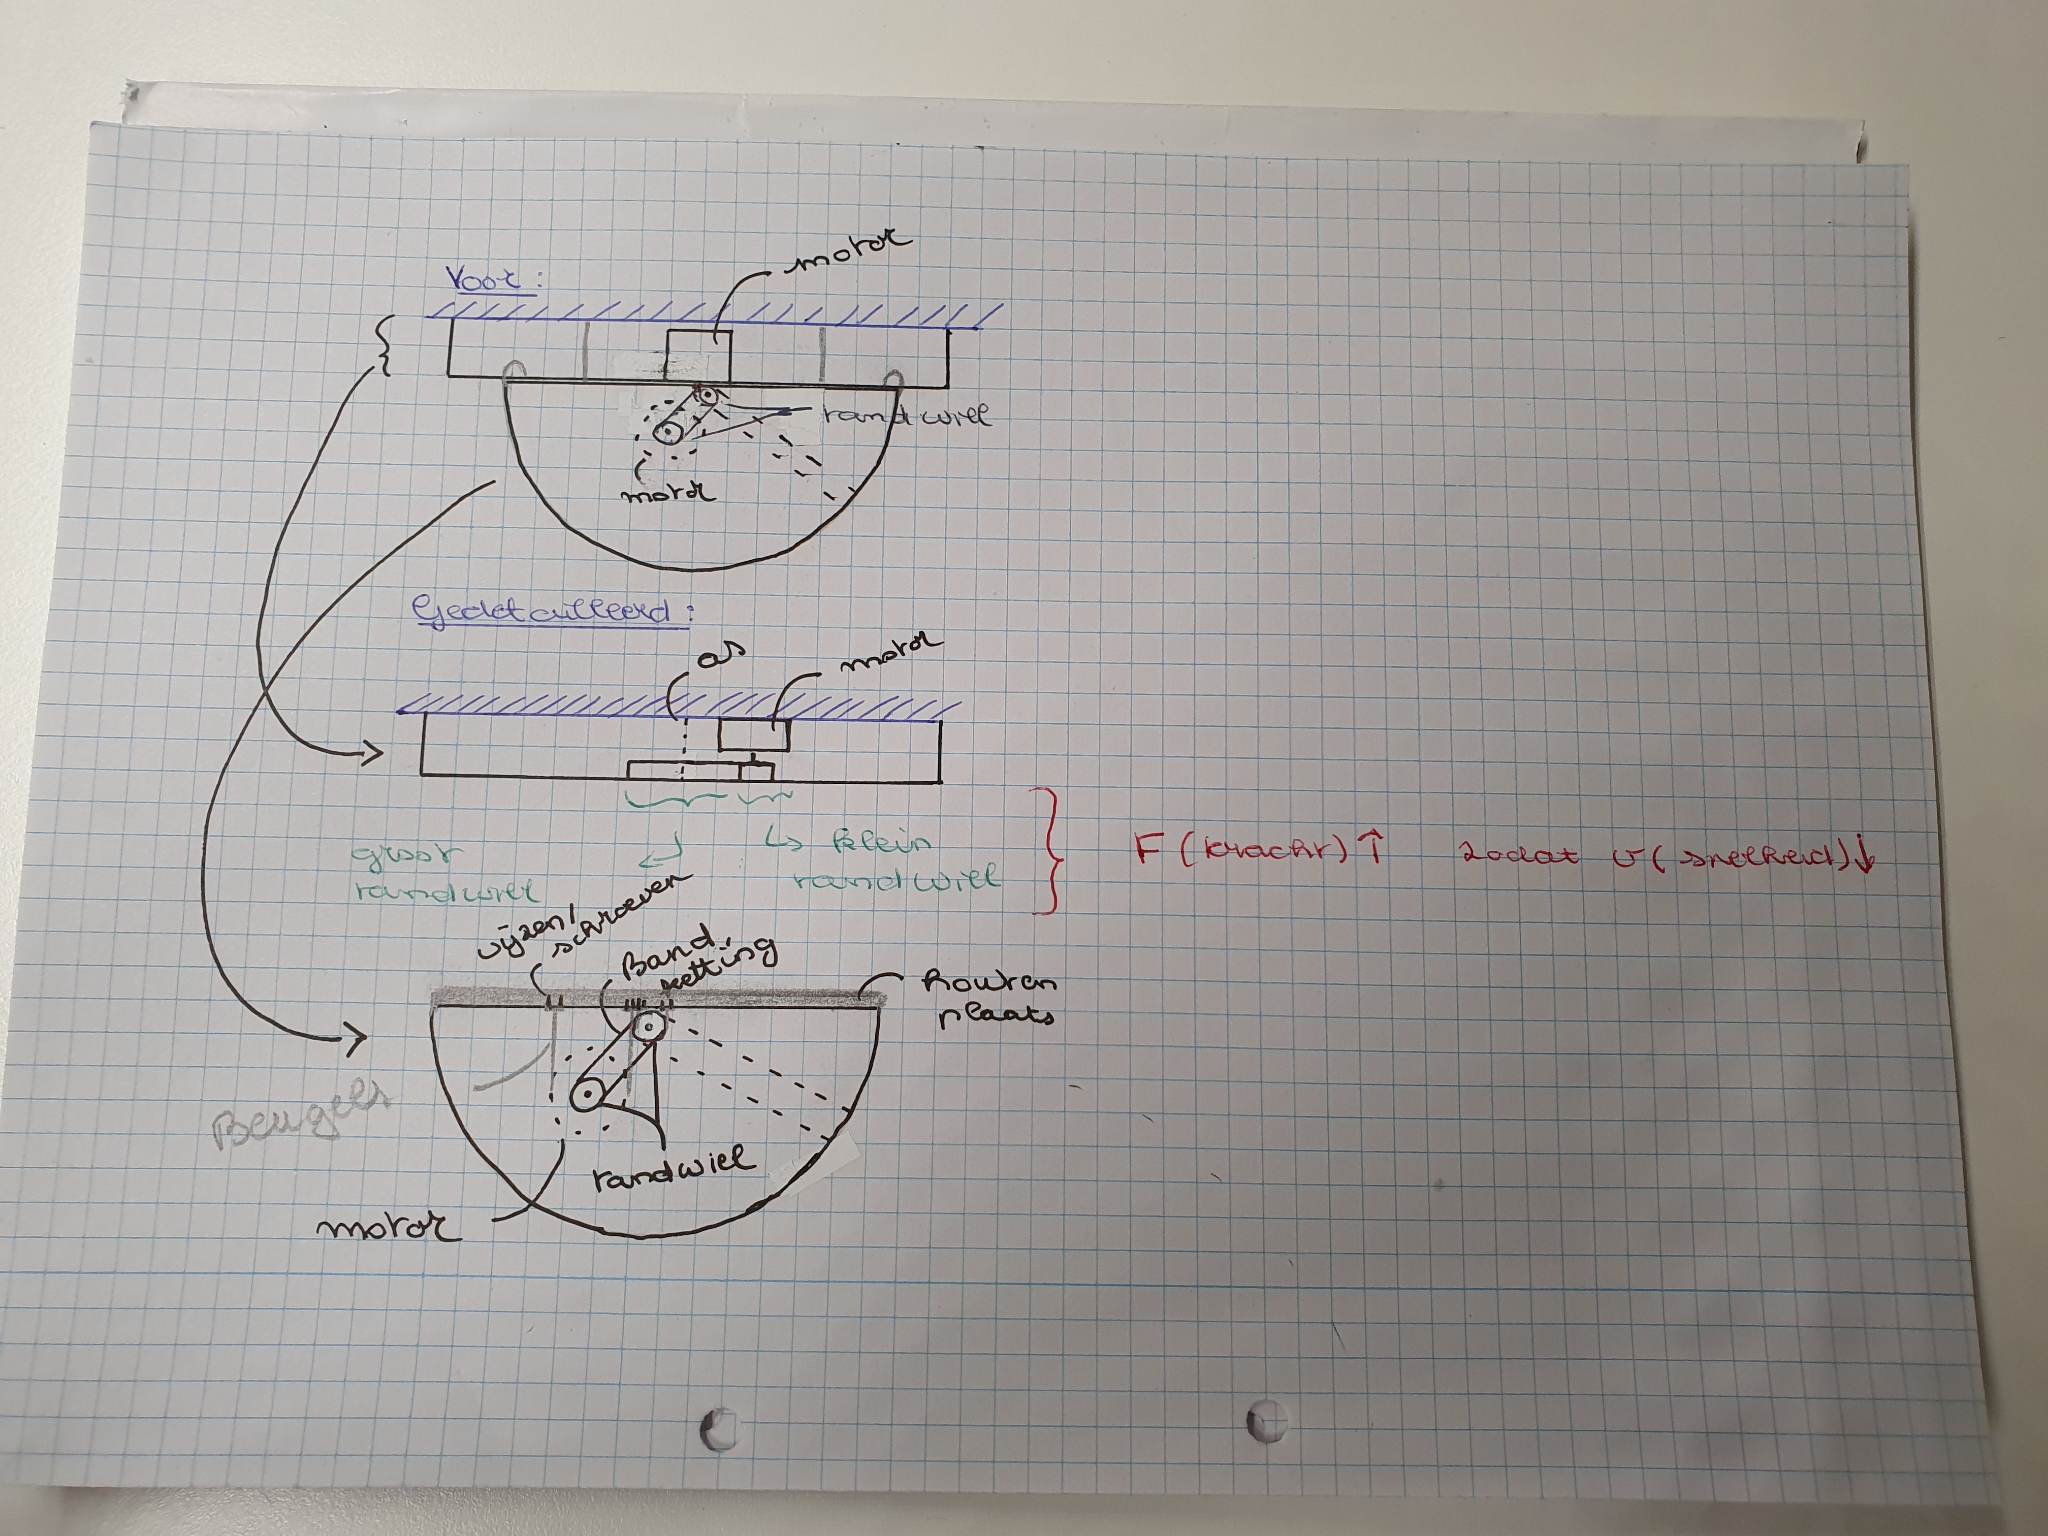 Voor:
motor
randwiel
motor
Gedetailleerd:
as
motor
groot
randwiel
klein
randwiel
F (kracht) ↑ zodat v (snelheid) ↓
vijzen/
schroeven
Band,
ketting
houten
plaats
Beugels
randwiel
motor